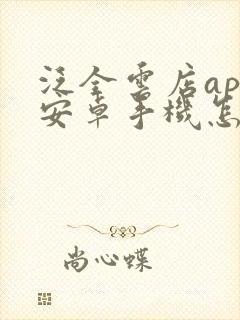 泛全雲店ap
安卓手機怎
尚心蝶